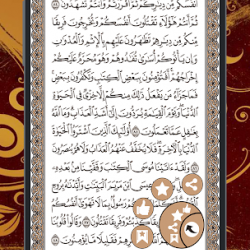 أَنفُسَكُم مِّن دِيَٰرِكُمْ ثُمَّ أَقْرَرْتُمْ وَأَنتُمْ تَشْهَدُونَ ٨٤
ثُمَّ أَنتُمْ هَٰٓؤُلَآءِ تَقْتُلُونَ أَنفُسَكُمْ وَتُخْرِجُونَ فَرِيقًا
مِّنكُم مِّن دِيَٰرِهِمْ تَظَٰهَرُونَ عَلَيْهِم بِٱلْإِثْمِ وَٱلْعُدْوَٰنِ
وَإِن يَأْتُوكُمْ أُسَٰرَىٰ تُفَٰدُوهُمْ وَهُوَ مُحَرَّمٌ عَلَيْكُمْ
إِخْرَاجُهُمْ أَفَتُؤْمِنُونَ بِبَعْضِ ٱلْكِتَٰبِ وَتَكْفُرُونَ بِبَعْضٍ
فَمَا جَزَآءُ مَن يَفْعَلُ ذَٰلِكَ مِنكُمْ إِلَّا خِزْىٌ فِى ٱلْحَيَوٰةِ
ٱلدُّنْيَا وَيَوْمَ ٱلْقِيَٰمَةِ يُرَدُّونَ إِلَىٰٓ أَشَدِّ ٱلْعَذَابِ وَمَا ٱللَّهُ
بِغَٰفِلٍ عَمَّا تَعْمَلُونَ ٨٥ أُو۟لَٰٓئِكَ ٱلَّذِينَ ٱشْتَرَوُا۟ ٱلْحَيَوٰةَ
ٱلدُّنْيَا بِٱلْءَاخِرَةِ فَلَا يُخَفَّفُ عَنْهُمُ ٱلْعَذَابُ وَلَا هُمْ يُنصَرُونَ
٨٦ وَلَقَدْ ءَاتَيْنَا مُوسَى ٱلْكِتَٰبَ وَقَفَّيْنَا مِنۢ بَعْدِهِۦ
ٱبْنَ مَرْيَمَ ٱلْبَيِّنَٰتِ وَأَيَّدْنَٰهُ بِرُوحِ
رَسُولٌۢ بِمَا لَا تَهْوَىٰٓ أَنفُسُكُمُ
وَفَرِيقًا تَقْتُلُونَ ٨٧ وَقَالُوا۟ قُلُوبُنَا
بِكُفْرِهِمْ فَقَلِيلًا مَّا يُؤْمِنُونَ ٨٨